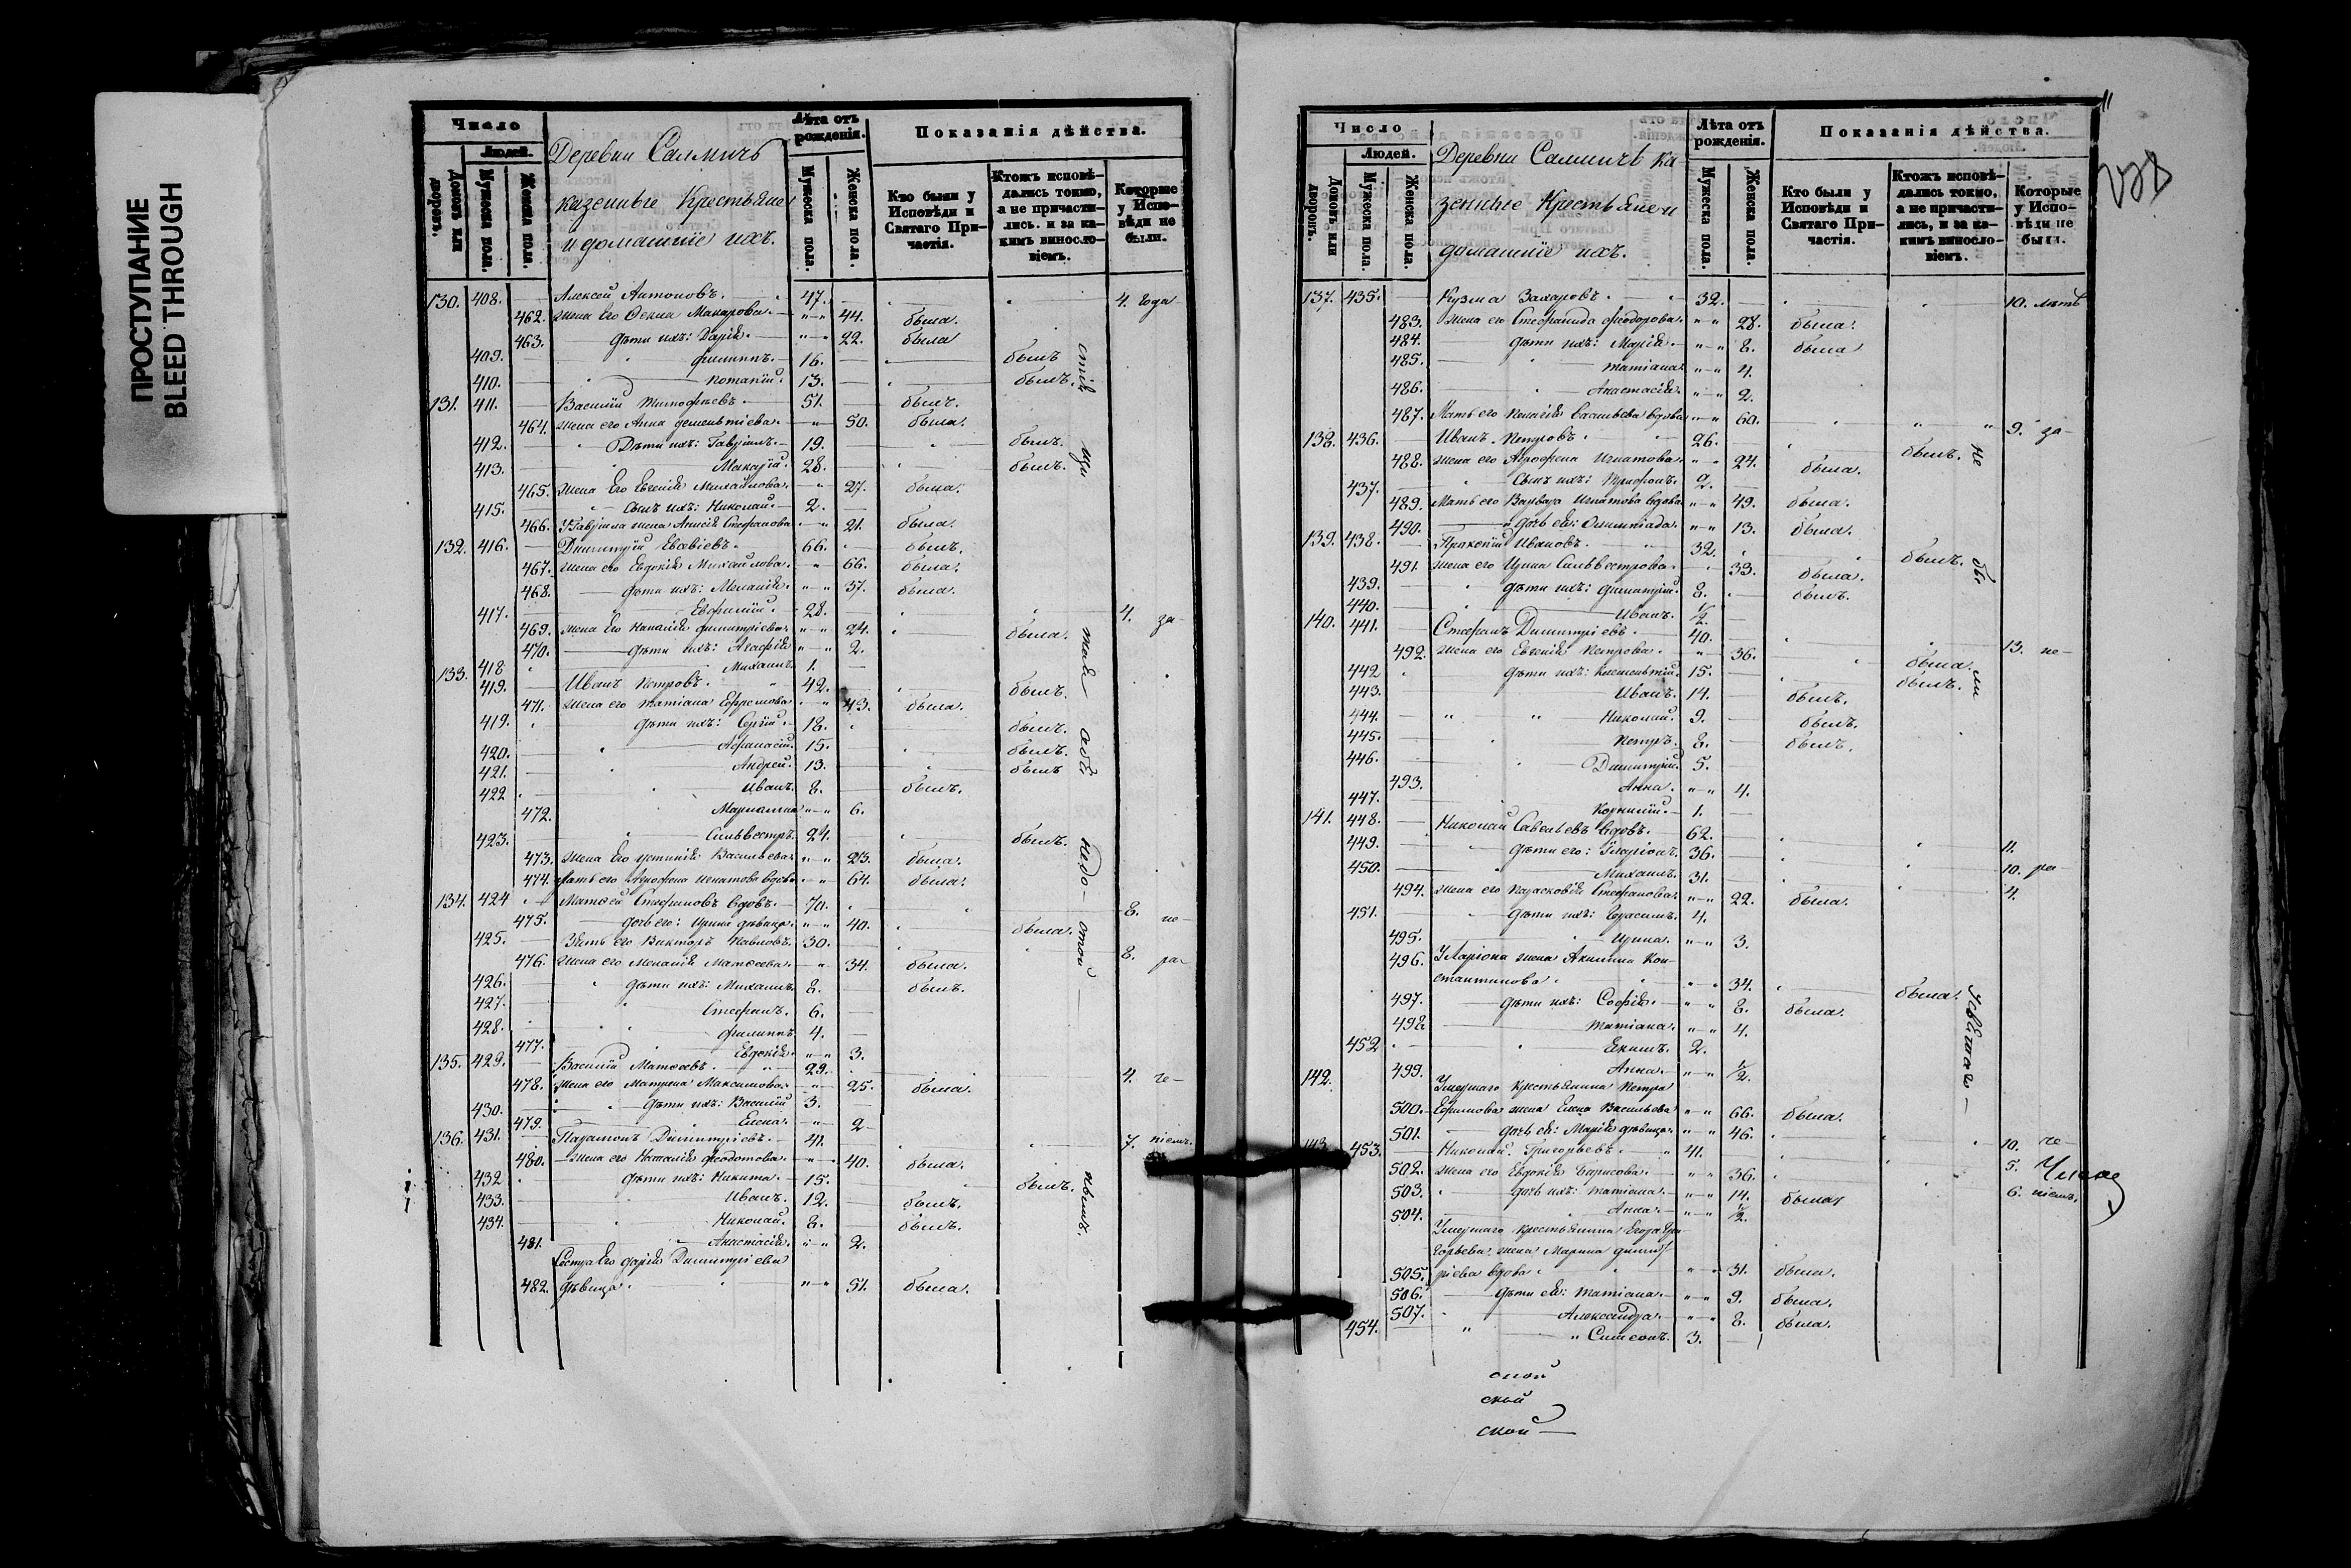 ПРОСТУПАНИЕ
BLEED THROUGH
Число
Людей.
Домовъ или дворовъ.
Мужеска пола.
Женска пола.
Деревни Салмичъ
казенные Крестьяне
и домашніе ихъ.
Лѣта отъ рожденія.
Мужеска пола.
Женска пола.
Показанія дѣйства.
Кто были у Исповѣди и Святаго Причастія.
Ктожъ исповѣдались токмо, а не причастились, и за какимъ винословіемъ.
Которые у Исповѣди не были.
130. 408. Алексей Антоновъ. 47. 4. года
462. жена его Ѳекла Макарова. 44. была.
463. дѣти ихъ: Дарія. 22. была
409. Филиппъ. 16. былъ
410. Потапій. 13. былъ.
131. 411. Василій Тимофѣевъ. 51. былъ.
464. жена его Анна Дементіева. 50. была.
412. Дѣти ихъ: Гавріилъ. 19. былъ.
413. Макарій. 28. былъ.
465. жена Его Евгенія Михайлова. 27. была.
415. Сынъ ихъ: Николай. 2.
466. У Гавріила жена Анисія Стефанова 21. была.
132. 416. Димитрій Евсевіевъ. 66. былъ.
467. жена его Евдокія Михайлова. 66. была.
468. дѣти ихъ: Меланія. 37. была.
417. Евфимій. 28. 4. за-
469. жена Его Наталія Димитріева. 24. была.
470. дѣти ихъ: Агафія 2.
418 Михаилъ 1.
133. 419. Иванъ Петровъ. 42. былъ.
471. жена его Татіана Ефремова 43. была.
419. дѣти ихъ: Сергій. 18. былъ.
420. Афанасій. 15. былъ.
421. Андрей. 13. былъ
422 Иванъ. 8. былъ.
472. Маріамна 6.
423. Сильвестръ. 24. былъ.
473. жена Его Устинія Васильева 23. была.
474. Мать его Агрофена Игнатова вдова 64. была.
134. 424 Матѳей Стефановъ вдовъ. 70. 8. не
475. дочь его: Ирина дѣвица. 40. была.
425. Зять его Викторъ Павловъ. 30. 8. ра-
476. жена его Меланія Матѳеева. 34. была.
426. дѣти ихъ: Михаилъ 8. былъ.
427. Стефанъ. 6.
428. Филиппъ 4.
477. Евдокія. 3.
135. 429. Василій Матѳеевъ. 29. 4. че-
478. жена его Матрена Максимова. 25. была.
430. дѣти ихъ: Василій 3.
479. Елена. 2
136. 431. Парамонъ Димитріевъ. 41. 7. ніемъ.
480. жена его Наталія Феодотова. 40. была.
432 дѣти ихъ: Никита. 15. былъ.
433. Иванъ. 12. былъ.
434. Николай. 8. былъ.
481. Анастасія. 2.
Сестра Его Дарія Димитріева
482. дѣвица. 51. была.
Число
Людей.
Домовъ или дворовъ.
Мужеска пола.
Женска пола.
Деревни Салмичъ ка
зенные Крестьяне и
домашніе ихъ.
Лѣта отъ рожденія.
Мужеска пола.
Женска пола.
Показанія дѣйства.
Кто были у Исповѣди и Святаго Причастія.
Ктожъ исповѣдались токмо, а не причастились, и за какимъ винословіемъ.
Которые у Исповѣди не были.
137. 435. Кузма Захаровъ. 32. 10. лѣтъ
483. Жена его Стефанида Феодорова. 28. была.
484. дѣти ихъ: Марія. 8. была
485. Татіана 4.
486. Анастасія. 2.
487. Мать его Пелагія Васильева вдова 60. 9. за-
138. 436. Иванъ Петровъ. 26. былъ.
488. жена его Агрофена Игнатова. 24. была.
437. Сынъ ихъ: Трифонъ. 2.
489. Мать его Варвара Игнатова вдова 49. была.
490. дочь ея: Олимпіада. 13. была.
139. 438. Прокопій Ивановъ. 32. былъ.
491. жена его Ирина Сильвестрова. 33. была.
439. дѣти ихъ: Димитрій. 8. былъ.
440. Иванъ. 1/2.
140. 441. Стефанъ Димитріевъ. 40. 13. не-
492. жена его Евгенія Петрова. 36. была.
442 дѣти ихъ: Климентій. 15. былъ.
443. Иванъ. 14. былъ.
444. Николай. 9. былъ.
445. Петръ. 8. былъ.
446. Димитрій. 5.
493. Анна. 4.
447. Корнилій. 1.
141. 448. Николай Савельевъ вдовъ. 62. 11.
449. дѣти его: Иларіонъ. 36. 10. ра
450. Михаилъ. 31. 4.
494. жена его Парасковія Стефанова. 22. была.
451. дѣти ихъ: Герасимъ. 4.
495. Ирина. 3.
496. У Ларіона жена Акилина Кон-
стантинова. 34. была.
497. дѣти ихъ: Софія. 8. была.
498 Татіана. 4.
452 Екимъ. 2.
499. Анна. 1/2.
142. Умершаго крестьянина Петра
500. Ефимова жена Елена Васильева 66. была.
501. дочь ея: Марія дѣвица. 46. 10. че-
143. 453. Николай Григорьевъ. 41. 5.
502. жена его Евдокія Борисова. 36. 6. ніемъ.
503. дочь ихъ: Татіана. 14. была
504. Анна. 1/2.
Умершаго крестьянина Егора Гри
горьева жена Марина Димит
505. ріева вдова 31. была.
506. дѣти ея: Татіана. 9. была.
507. Александра. 8. была.
454. Симеонъ. 3.
ской